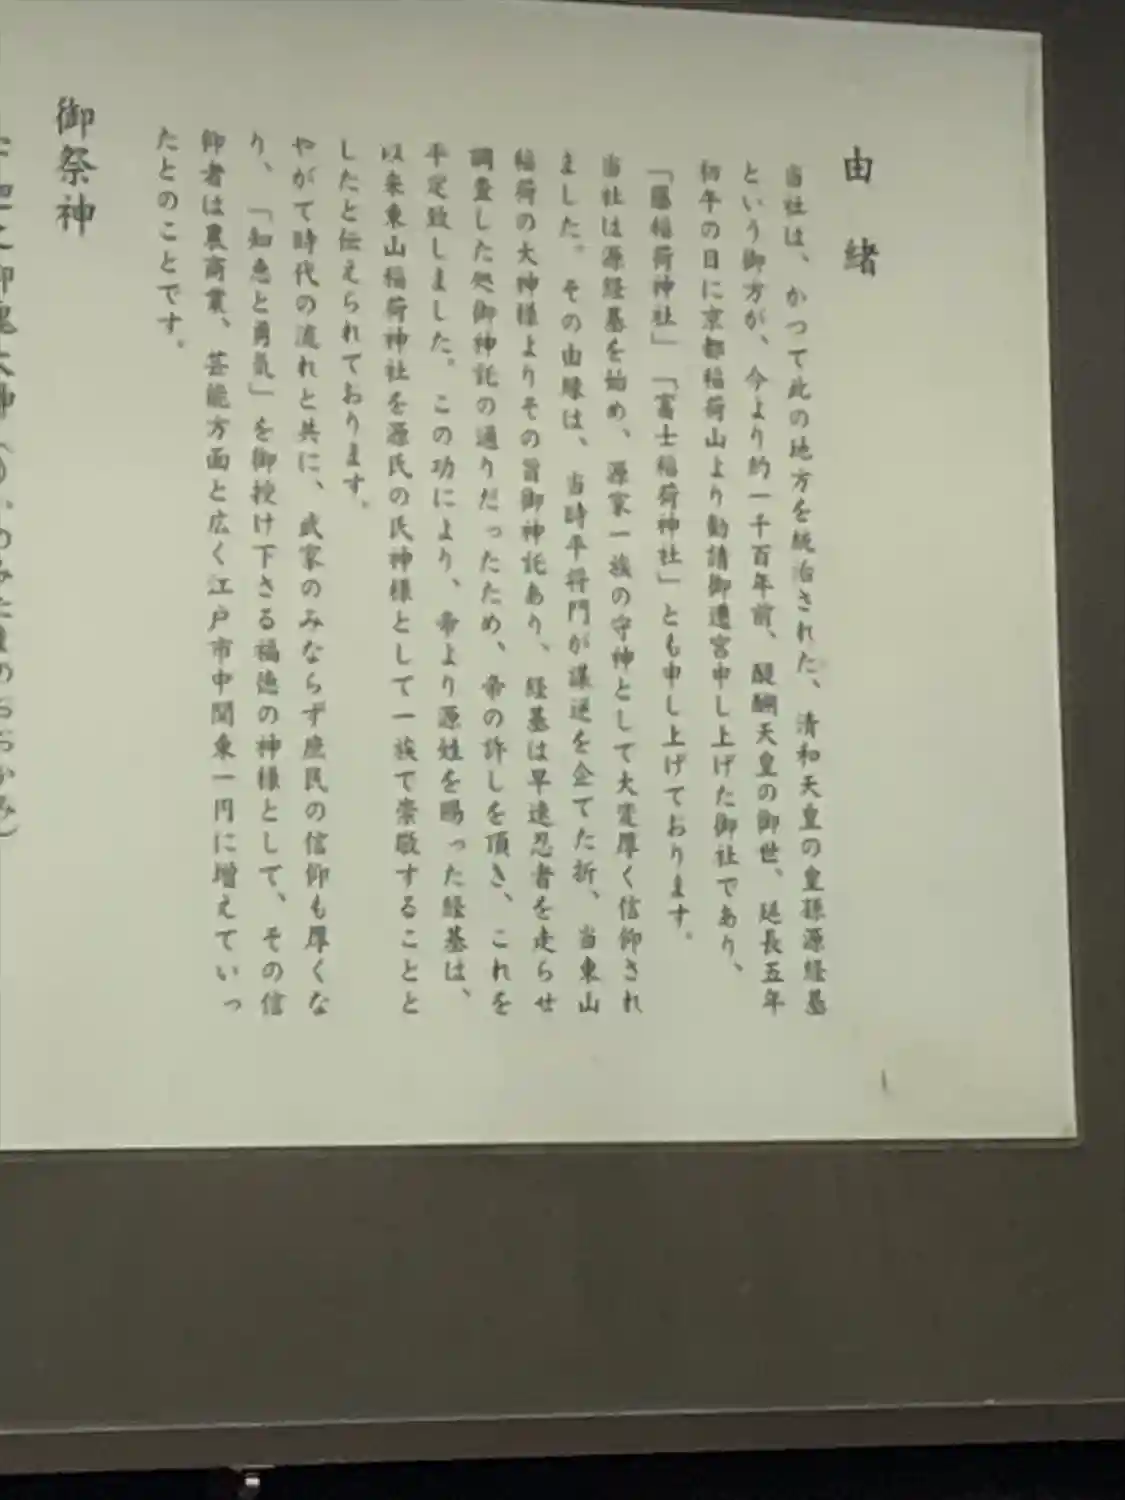 由緒
当社は、かつて此の地方を統治された、清和天皇の皇孫源経基
という御方が、今より約一千百年前、醍醐天皇の御世、延長五年
初午の日に京都稲荷山より勧請御遷宮申し上げた御社であり、
「藤稲荷神社」「富士稲荷神社」とも申し上げております。
当社は源経基を始め、源家一族の守神として大変厚く信仰され
ました。その由縁は、当時平将門が謀逆を企てた折、当東山
稲荷の大神様よりその旨御神託あり、経基は早速忍者を走らせ
調査した処御神託の通りだったため、帝の許しを頂き、これを
平定致しました。この功により、帝より源姓を賜った経基は、
以来東山稲荷神社を源氏の氏神様として一族で崇敬することと
したと伝えられております。
やがて時代の流れと共に、武家のみならず庶民の信仰も厚くな
り、「知恵と勇気」を御授け下さる福徳の神様として、その信
仰者は農商業、芸能方面と広く江戸市中関東一円に増えていっ
たとのことです。
御祭神